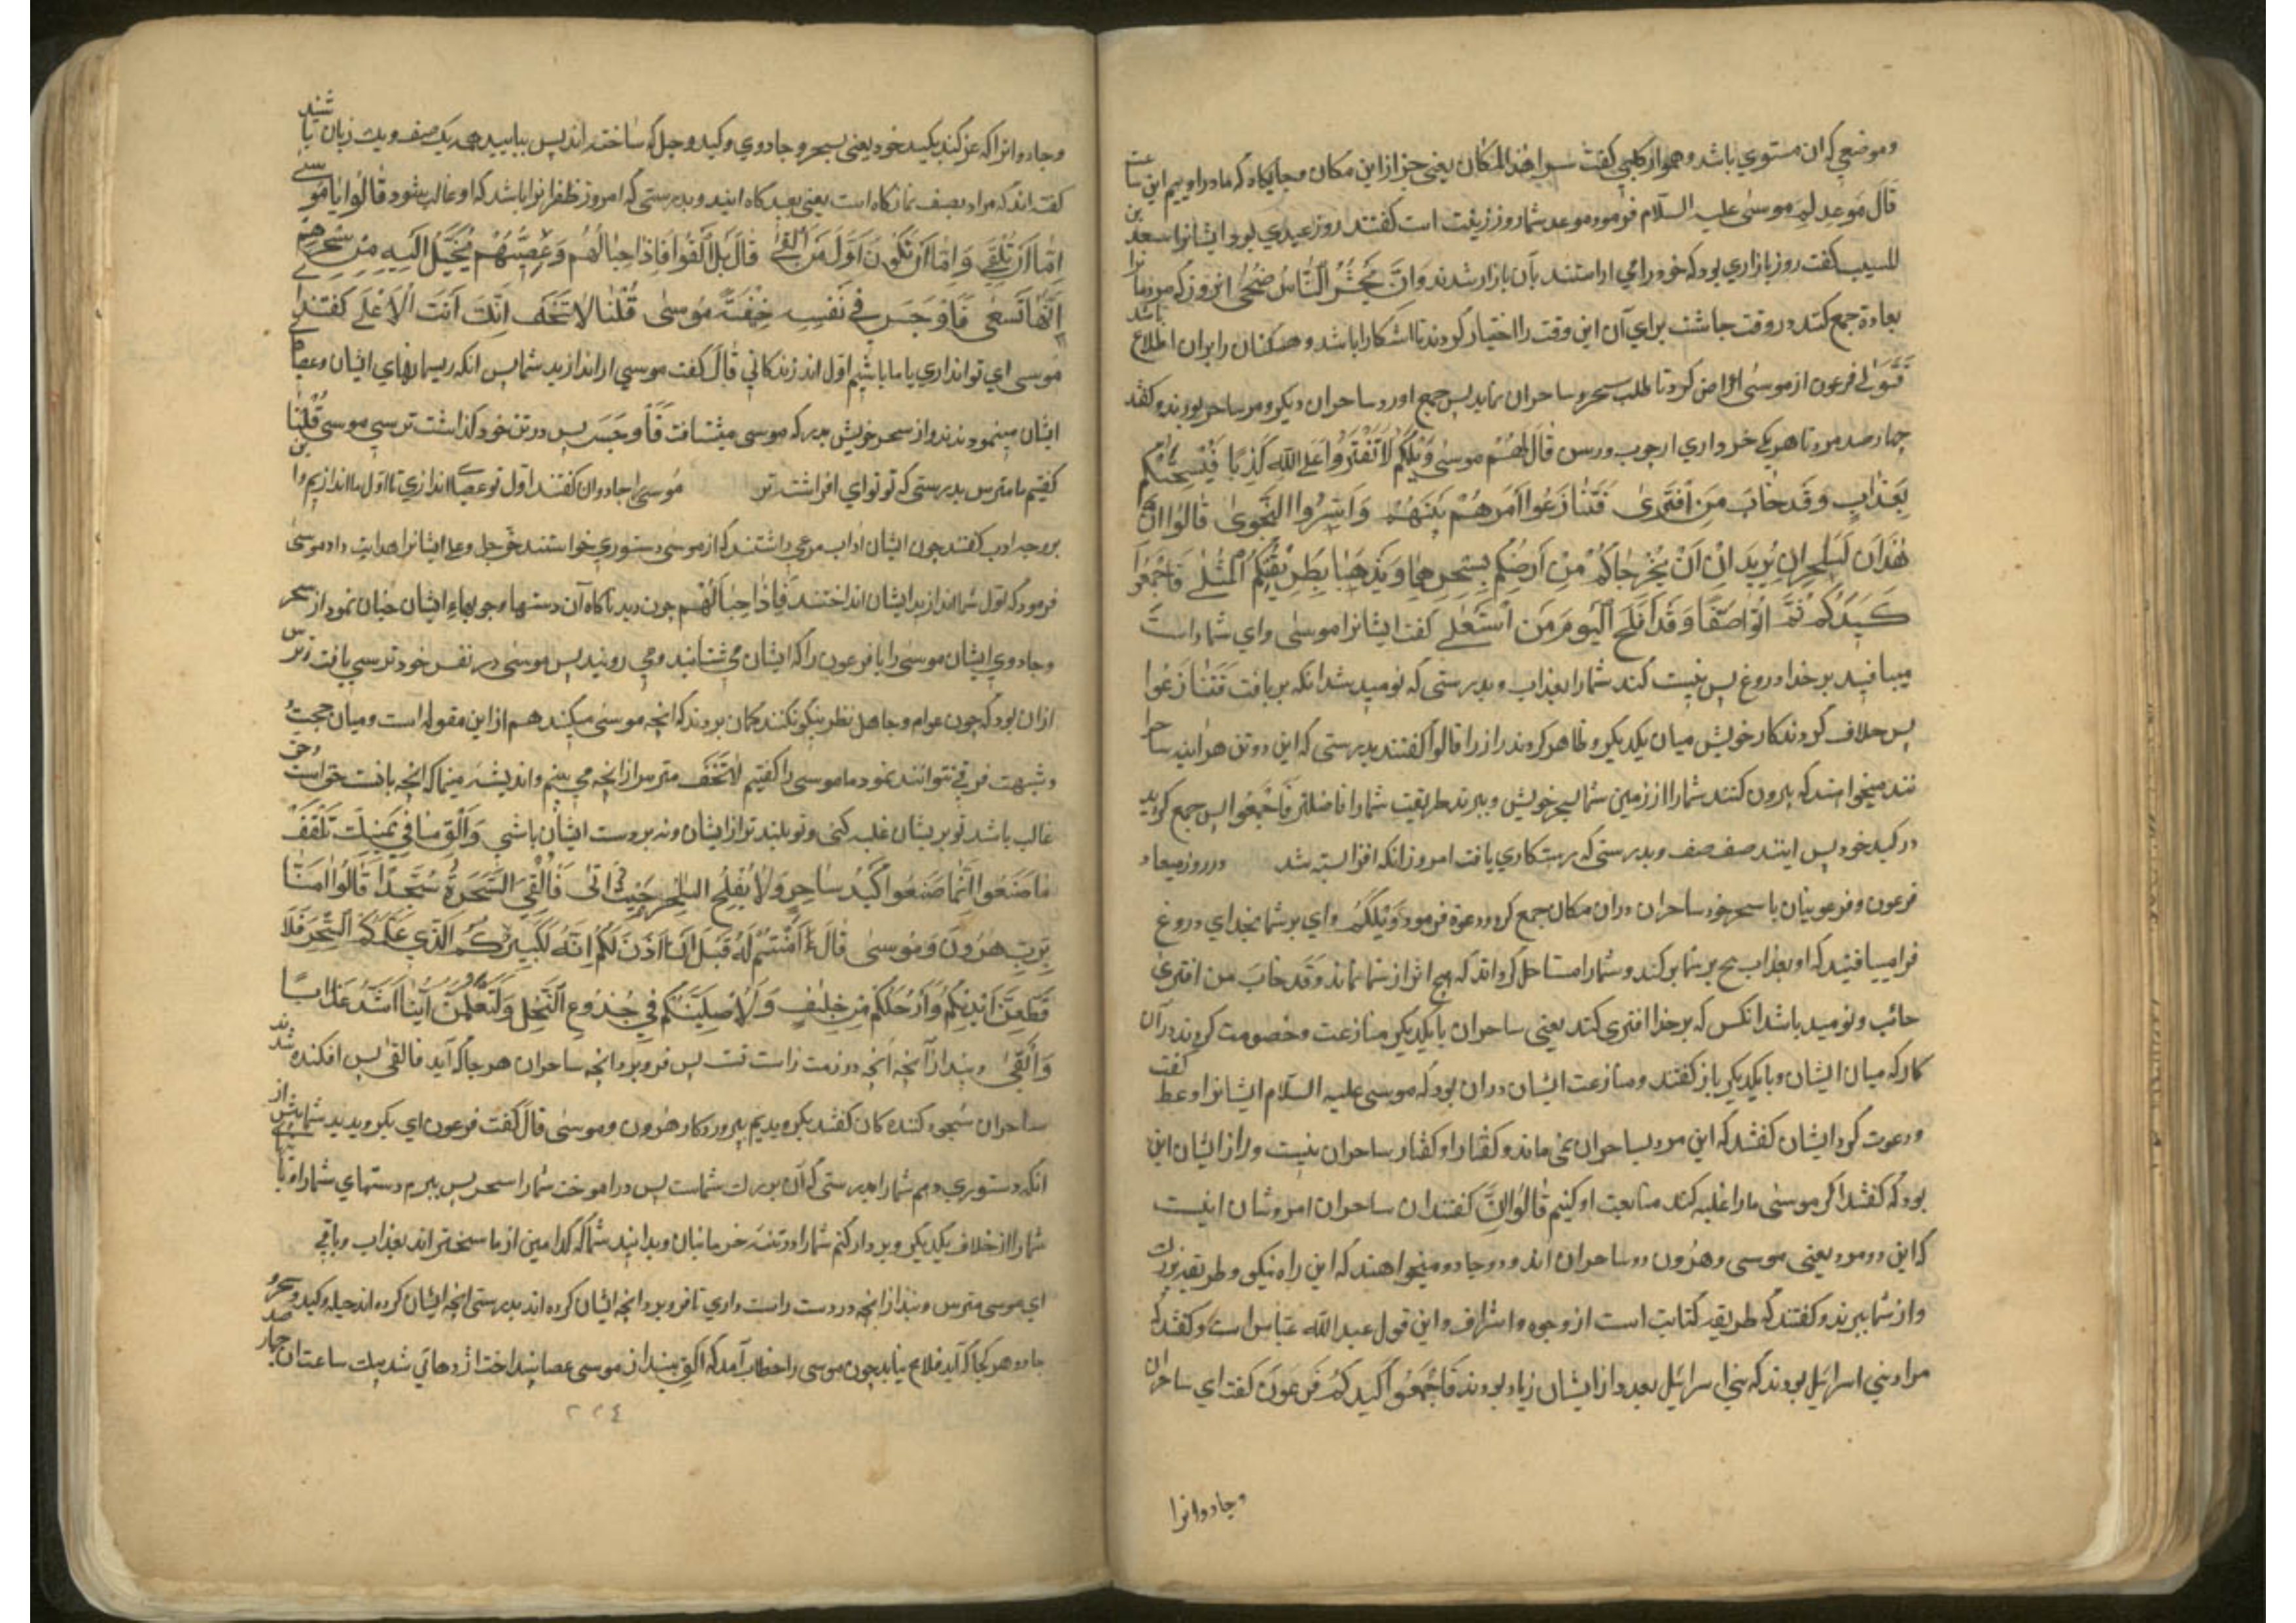 وموضعی که ان مستوی باشد وهو از کلبی کفت سوا هذا المکان یعنی جز از این مکان وجایکاه که ما در اوییم این ساعت
قال موعد لهم موسی علیه السلام فرمود موعد شما روز زینت است کفتند روز عیدی بود ایشانرا سعد بن
المسیب کفت روز بازاری بود که خود را می اراستند بآن بازار شدند وَاَنْ یُحْشَرَ النَّاسُ ضُحًی انروز که مردمانرا
بعادة جمع کنند در وقت چاشت برای آن این وقت را اختیار کردند تا اشکارا باشد وهمکنان را بران اطلاع باشد
فَتَوَلّٰی فرعون از موسی اعراض کرد تا طلب سحر وساحران نماید پس جمع اورد ساحران دیکر ومر ساحر بودند وکفتند
چهارصد مرد تا هر یکی خرواری از چوب ورسن قَالَ لَهُمْ مُوسٰی وَیْلَکُمْ لَا تَفْتَرُوا عَلَی اللهِ کَذِبًا فَیُسْحِتَکُمْ
بِعَذَابٍ وَقَدْ خَابَ مَنِ افْتَرٰی فَتَنَازَعُوا اَمْرَهُمْ بَیْنَهُمْ وَاَسَرُّوا النَّجْوٰی قَالُوا اِنْ
هٰذَانِ لَسَاحِرَانِ یُرِیدَانِ اَنْ یُخْرِجَاکُمْ مِنْ اَرْضِکُمْ بِسِحْرِهِمَا وَیَذْهَبَا بِطَرِیقَتِکُمُ الْمُثْلٰی فَاَجْمِعُوا
کَیْدَکُمْ ثُمَّ ائْتُوا صَفًّا وَقَدْ اَفْلَحَ الْیَوْمَ مَنِ اسْتَعْلٰی کفت ایشانرا موسی وای شما راست
میبافید بر خدا دروغ پس نیست کند شما را بعذاب وبدرستی که نومید شد انکه بربافت فَتَنَازَعُوا
پس خلاف کردند کار خویش میان یکدیکر وظاهر کردند راز را قالوا کفتند بدرستی که این دو تن هراینه ساحرا
نند میخواهند که بیرون کنند شما را از زمین شما بسحر خویش وببرند طریقت شما را فاضلتر فَاَجْمِعُوا پس جمع کردید
در کید خود پس ایتند صف صف وبدرستی که رستکاری یافت امروز انکه افزا لبته شد در روز میعاد
فرعون وفرعونیان با سحر خود ساحران دران مکان جمع کرد ودعوة فرمود وَیْلَکُمْ وای بر شما بخدای دروغ
فرا میبافید که او بعذاب بیخ بر شما برکند وشما را مستاصل کرداند که هیچ اثر از شما نماند وَقَدْ خَابَ مَنِ افْتَرٰی
خائب ونومید باشد انکس که بر خدا افتری کند یعنی ساحران با یکدیکر منازعت وخصومت کردند در آن
کار که میان ایشان وبا یکدیکر باز کفتند ومنازعت ایشان دران بود که موسی علیه السلام ایشانرا وعظ کفت
ودعوت کرد ایشان کفتند که این مرد بساحران نمی ماند وکفتار او کفتار ساحران نیست وراز ایشان این
بود که کفتند اکر موسی ما را غلبه کند متابعت او کنیم قَالُوا اِنْ کفتند ان ساحران امر وشان اینست
که این دو مرد یعنی موسی وهرون دو ساحران اند ودو جادو میخواهند که این راه نیکو وطریقه بزرک
واز شما ببرند وکفتند که طریقه کنایت است از وجوه واشراف واین قول عبدالله عباس است وکفتند که
مراد بنی اسرائیل بودند که بنی اسرائیل بعدد از ایشان زیاد بودند فَاَجْمِعُوا کَیْدَکُمْ فرعون کفت ای ساحران
وجادوانرا
وجادوانرا که عز کنند بکید خود یعنی بسحر وجادوی وکید وحیل که ساخته اند پس بیایید همه یک صف ویک زبان باشید
کفته اند که مراد بصف نمازکاه است یعنی بعیدکاه ایید وبدرستی که امروز ظفر انرا باشد که او غالب بشود قَالُوا یَا مُوسٰی
اِمَّا اَنْ تُلْقِیَ وَاِمَّا اَنْ نَکُونَ اَوَّلَ مَنْ اَلْقٰی قَالَ بَلْ اَلْقُوا فَاِذَا حِبَالُهُمْ وَعِصِیُّهُمْ یُخَیَّلُ اِلَیْهِ مِنْ سِحْرِهِمْ
اَنَّهَا تَسْعٰی فَاَوْجَسَ فِی نَفْسِهِ خِیفَةً مُوسٰی قُلْنَا لَا تَخَفْ اِنَّکَ اَنْتَ الْاَعْلٰی کفتند ای
موسی ای تو انداری یا ما باشیم اول اندزندکانی قَالَ کفت موسی ار اندازید شما پس انکه ریسمانهای ایشان وعصا
ایشان مینمودند ندو از سحر خویش بدرکه موسی میشتافت فَاَوْجَسَ پس در تن خود کذاشت ترسی موسی قُلْنَا
کفتیم ما مترس بدرستی که تو توای افراشته تر موسی را جادوان کفتند اول تو عصا اندازی تا اول ما اندازیم واین
بر وجه ادب کفتند چون ایشان اداب مرعی داشتند که از موسی دستوری خواستند عز وجل وعلا ایشانرا هدایت داد موسی
فرمود که اول شما اندازید ایشان انداختند فَاِذَا حِبَالُهُمْ چون دید ناکاه آن دستها وچوبهاء ایشان چنان نمود از سحر
وجادوی ایشان موسی را یا فرعون را که ایشان می شتابند ومی روند پس موسی در نفس خود ترسی یافت وترس
ازان بود که چون عوام وجاهل نظر نیکو نکنند کمان بردند که انچه موسی میکند هم از این مقوله است ومیان حجت
وشبهت فرقی نتوانند نمود ما موسی را کفتیم لَا تَخَفْ مترس از انچه می بینم واندیشه منما که انچه یافت خواست وحق
غالب باشد تو بریشان غلبه کنی وتو بلند تر از ایشان ونه بر دست ایشان باشی وَاَلْقِ مَا فِی یَمِینِکَ تَلْقَفْ
مَا صَنَعُوا اِنَّمَا صَنَعُوا کَیْدُ سَاحِرٍ وَلَا یُفْلِحُ السَّاحِرُ حَیْثُ اَتٰی فَاُلْقِیَ السَّحَرَةُ سُجَّدًا قَالُوا اٰمَنَّا
بِرَبِّ هٰرُونَ وَمُوسٰی قَالَ ءَاٰمَنْتُمْ لَهُ قَبْلَ اَنْ اٰذَنَ لَکُمْ اِنَّهُ لَکَبِیرُکُمُ الَّذِی عَلَّمَکُمُ السِّحْرَ فَلَاُ
قَطِّعَنَّ اَیْدِیَکُمْ وَاَرْجُلَکُمْ مِنْ خِلَافٍ وَلَاُصَلِّبَنَّکُمْ فِی جُذُوعِ النَّخْلِ وَلَتَعْلَمُنَّ اَیُّنَا اَشَدُّ عَذَابًا
وَاَبْقٰی وبنداز آنچه انچه دردست راست تست پس فرو برد انچه ساحران هر جا که آید فالقی پس افکنده شدند
ساحران سجود کننده کان کفتند بکرویدیم بپروردکار هرون وموسی قال کفت فرعون ای بکرویدید شما پیش از
انکه دستوری دهم شما را بدرستی که آن بزرک شماست پس دراموخت شما را سحر پس ببرم دستهای شما را وپا
شما را از خلاف یکدیکر وبردار کنم شما را در تنه خرمابنان وبدانید شما که کدامین از ما سختر اند بعذاب وباقی
ای موسی مترس وبنداز انچه در دست راست داری تا فرو برد انچه ایشان کرده اند بدرستی انچه ایشان کرده اند حیله وکید وسحر
جادو هر کجا که آید فلاح نیابد چون موسی را خطاب آمد که الق بینداز موسی عصا بینداخت اژدهائی شد بیک ساعت ان چهارصد
٢٢٤